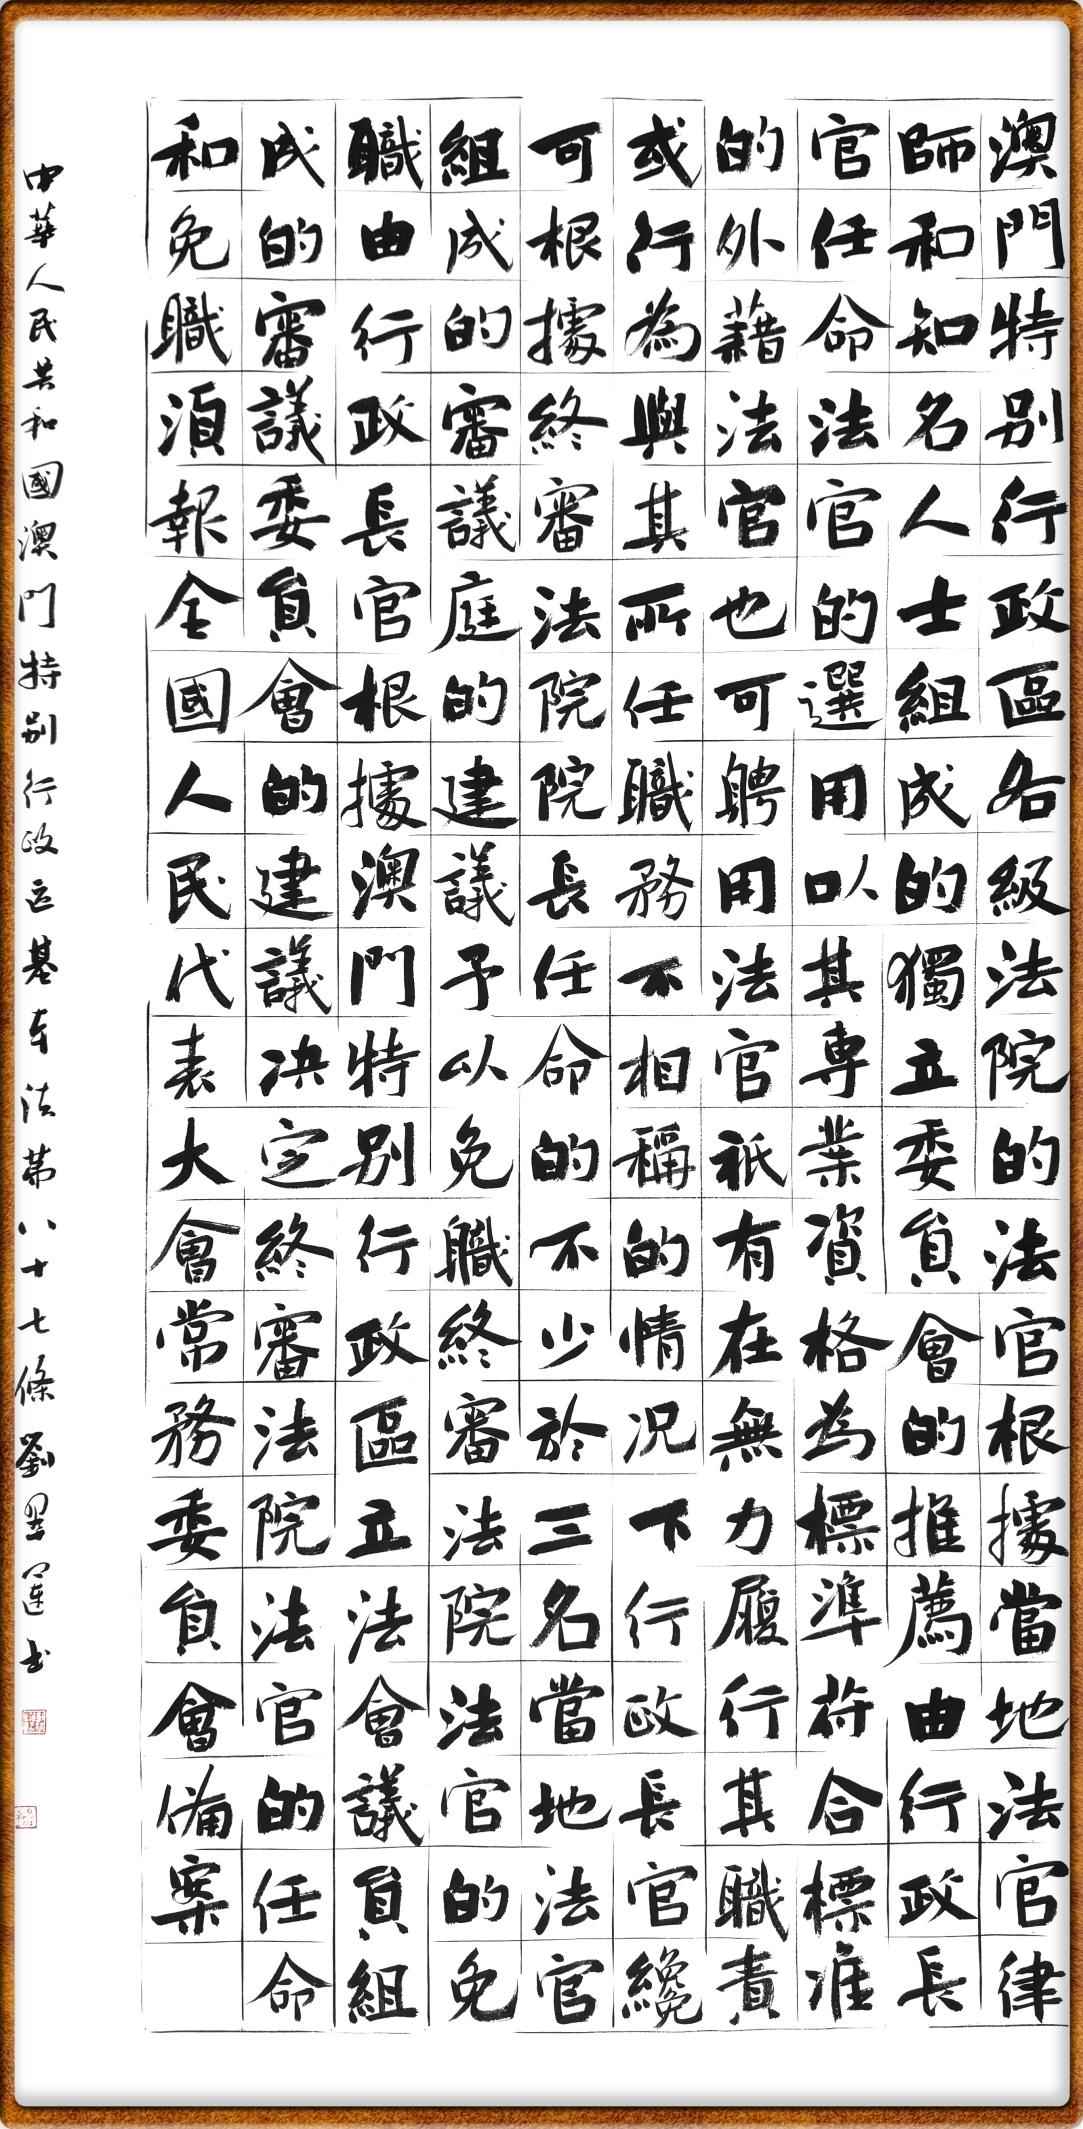 澳門特别行政區各級法院的法官根據當地法官律
師和知名人士組成的獨立委員會的推薦由行政長
官任命法官的選用以其專業資格為標準符合標准
的外藉法官也可聘用法官祇有在無力履行其職責
或行為與其所任職務不相稱的情况下行政長官纔
可根據終審法院院長任命的不少於三名當地法官
組成的審議庭的建議予以免職終審法院法官的免
職由行政長官根據澳門特别行政區立法會議員組
成的審議委員會的建議决定終審法院法官的任命
和免職須報全國人民代表大會常務委員會備案
中華人民共和國澳門特别行政区基本法第八十七條劉運书